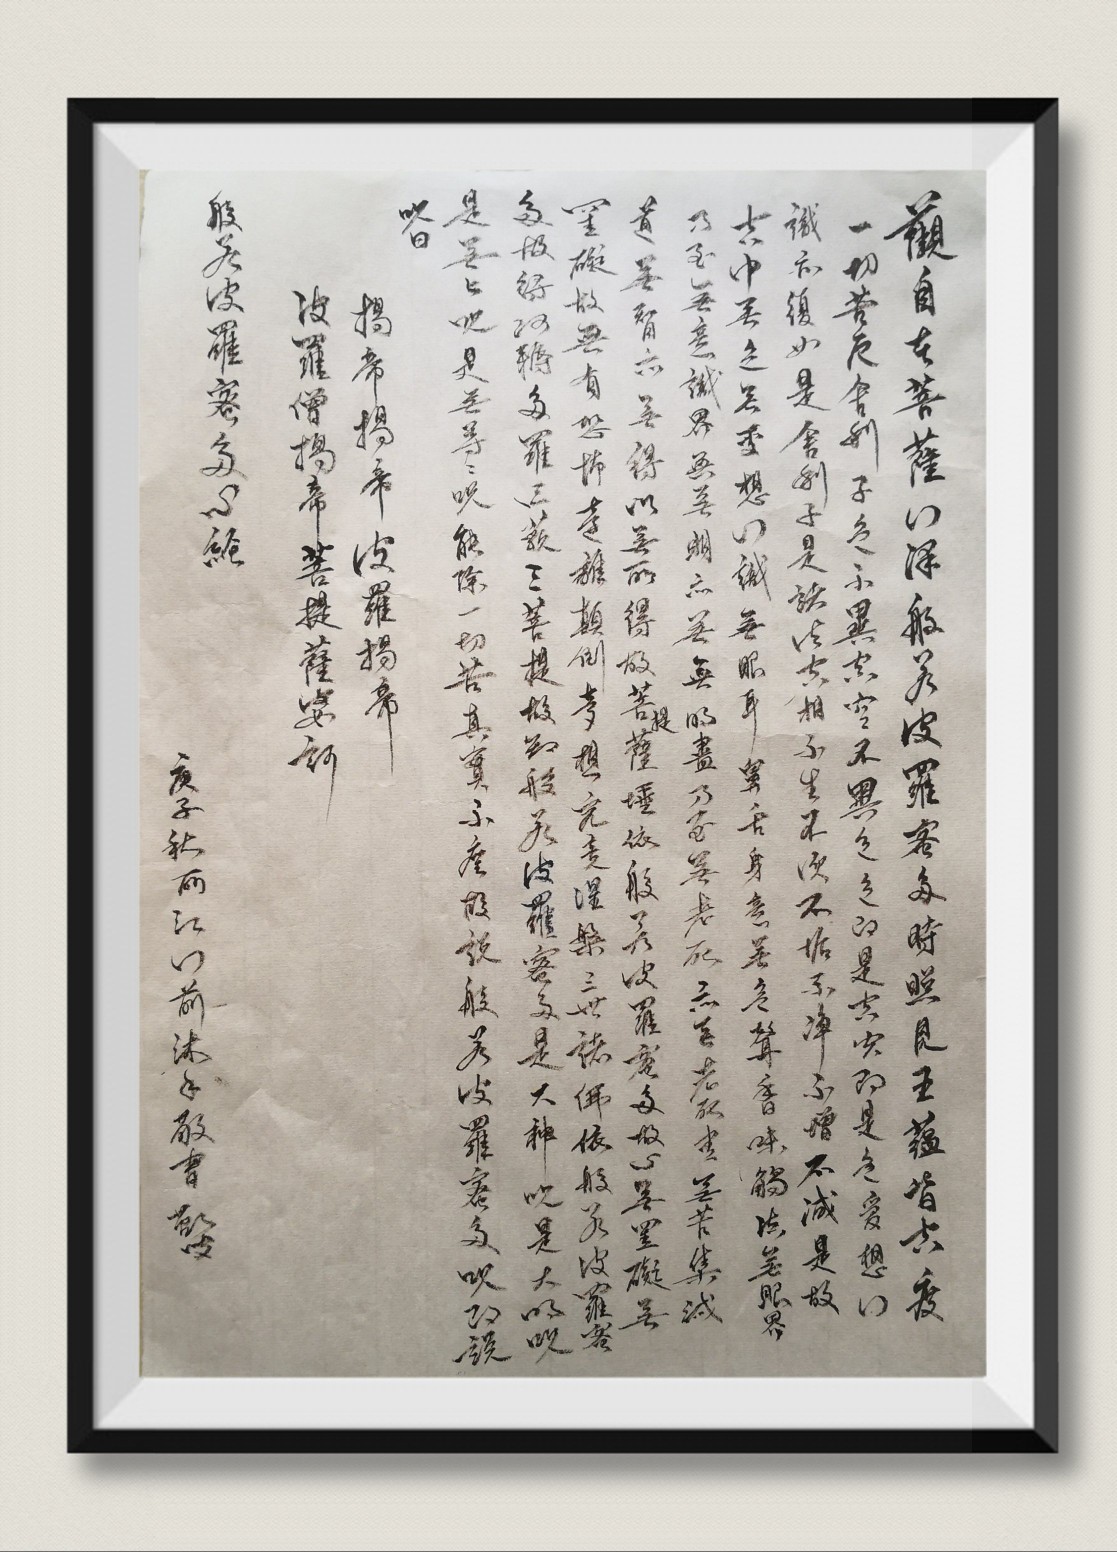 觀自在菩薩行深般若波羅密多時照見五蘊皆空度
一切苦厄舍利子色不異空空不異色色即是空空即是色受想行
識亦復如是舍利子是諸法空相不生不滅不垢不淨不增不減是故
空中無色無受想行識無眼耳鼻舌身意無色聲香味觸法無眼界
乃至無意識界無無明亦無無明盡乃至無老死亦無老死盡無苦集滅
道無智亦無得以無所得故菩提薩埵依般若波羅密多故心無罣礙無
罣礙故無有恐怖遠離顛倒夢想究竟涅槃三世諸佛依般若波羅密
多故得阿耨多羅三藐三菩提故知般若波羅密多是大神呪是大明呪
是無上呪是無等々呪能除一切苦真實不虛故說般若波羅密多呪即說
呪曰
揭帝揭帝波羅揭帝
波羅僧揭帝菩提薩婆訶
般若波羅密多心經
庚子秋丽江门前沐手敬書